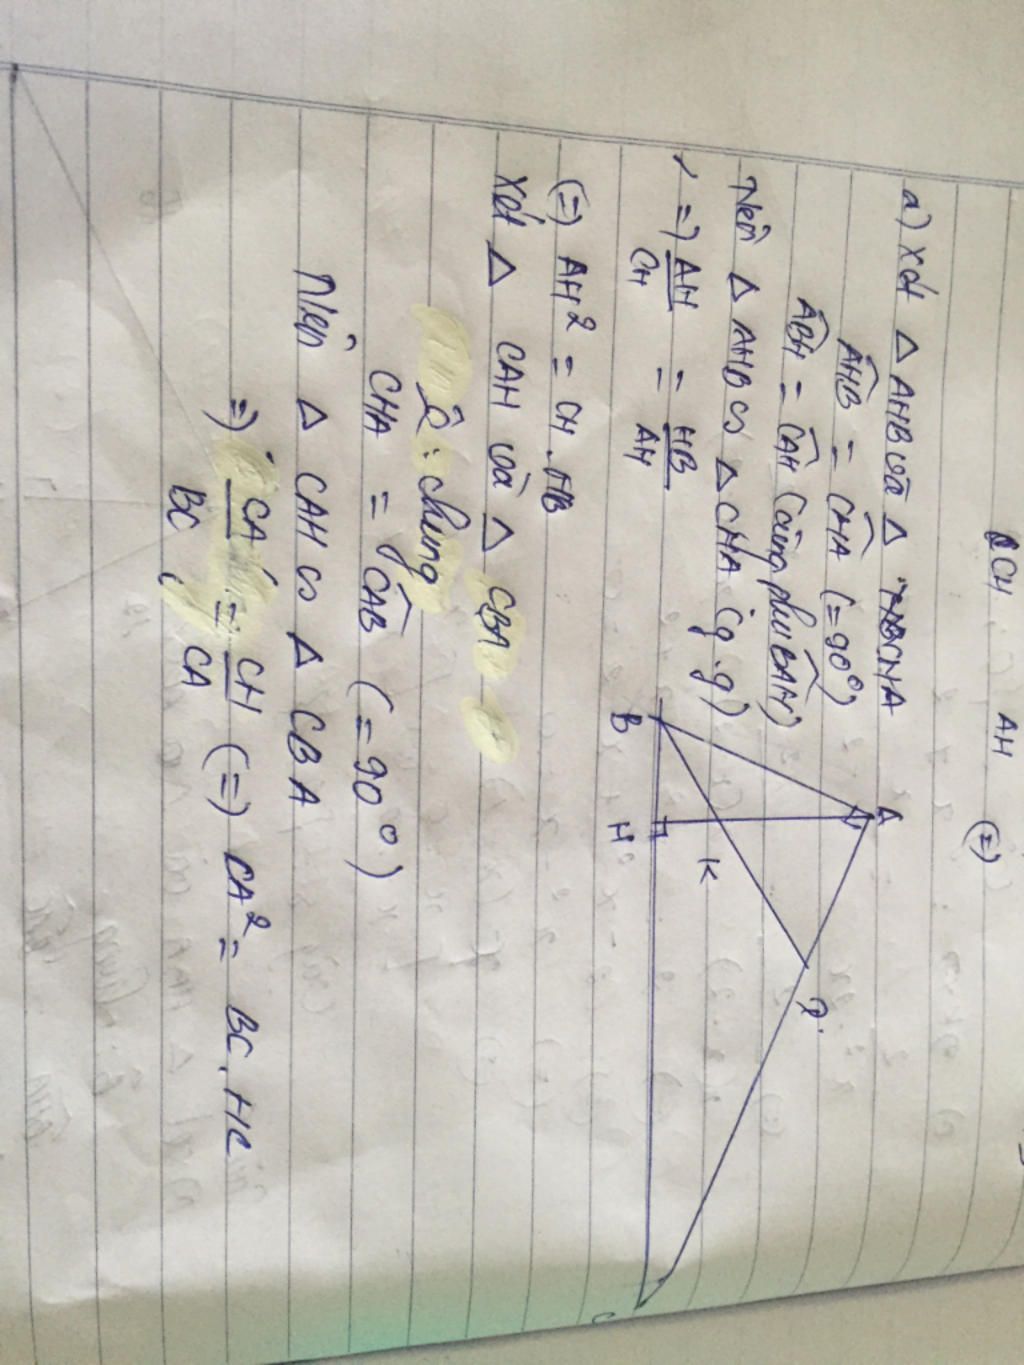 CH AH (=)
a) Xét △ AHB và △ CHA
AHB = CHA (= 90°)
ABH = CAH (cùng phụ BAH)
Nên △ AHB ∽ △ CHA (g.g)
=) AH/CH = HB/AH
(=) AH² = CH . HB
Xét △ CAH và △ CBA
Ĉ : chung
CHA = CAB (= 90°)
Nên △ CAH ∽ △ CBA
=) CA/BC = CH/CA (=) CA² = BC . HC
A
B
H
K
C